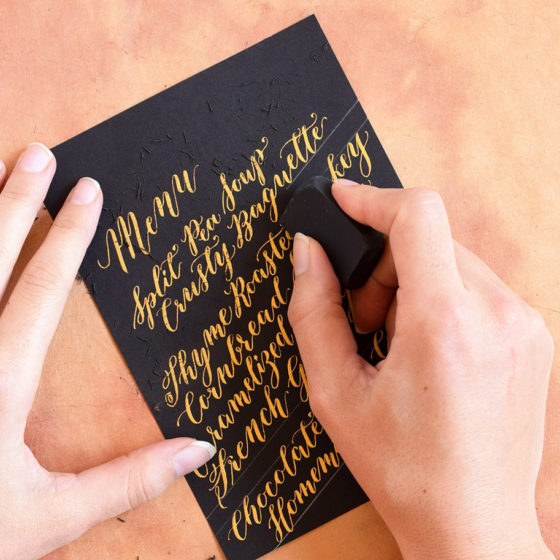 Menu
Split Pea Soup
Crusty Baguette
Thyme Roasted
Cornbread
French
Chocolate
Homem